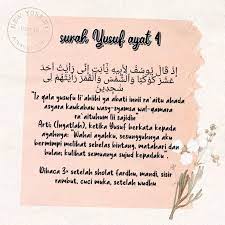 surah Yusuf ayat 4
إِذْ قَالَ يُوسُفُ لِأَبِيهِ يَٰٓأَبَتِ إِنِّى رَأَيْتُ أَحَدَ
عَشَرَ كَوْكَبًا وَٱلشَّمْسَ وَٱلْقَمَرَ رَأَيْتُهُمْ لِى
سَٰجِدِينَ
"Iz qala yusufu li'abihi ya abati innii ra'aitu ahada
asyara kaukabaw wasy-syamsa wal-qamara
ra'aituhum lii sajidin"
Arti: (Ingatlah), ketika Yusuf berkata kepada
ayahnya: "Wahai ayahku, sesungguhnya aku
bermimpi melihat sebelas bintang, matahari dan
bulan; kulihat semuanya sujud kepadaku."
Dibaca 3× setelah sholat fardhu, mandi, sisir
rambut, cuci muka, setelah wudhu